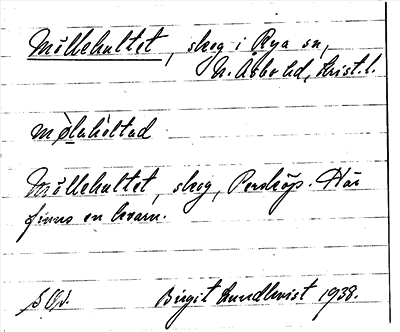 Möllehultet, skog i Rya sn,
N. Åsbo hd, Krist. l.
mø̀lahὲltad
Möllehultet, skog, Perstorp. Här
finns en kvarn.
Birgit Lundkvist 1938.